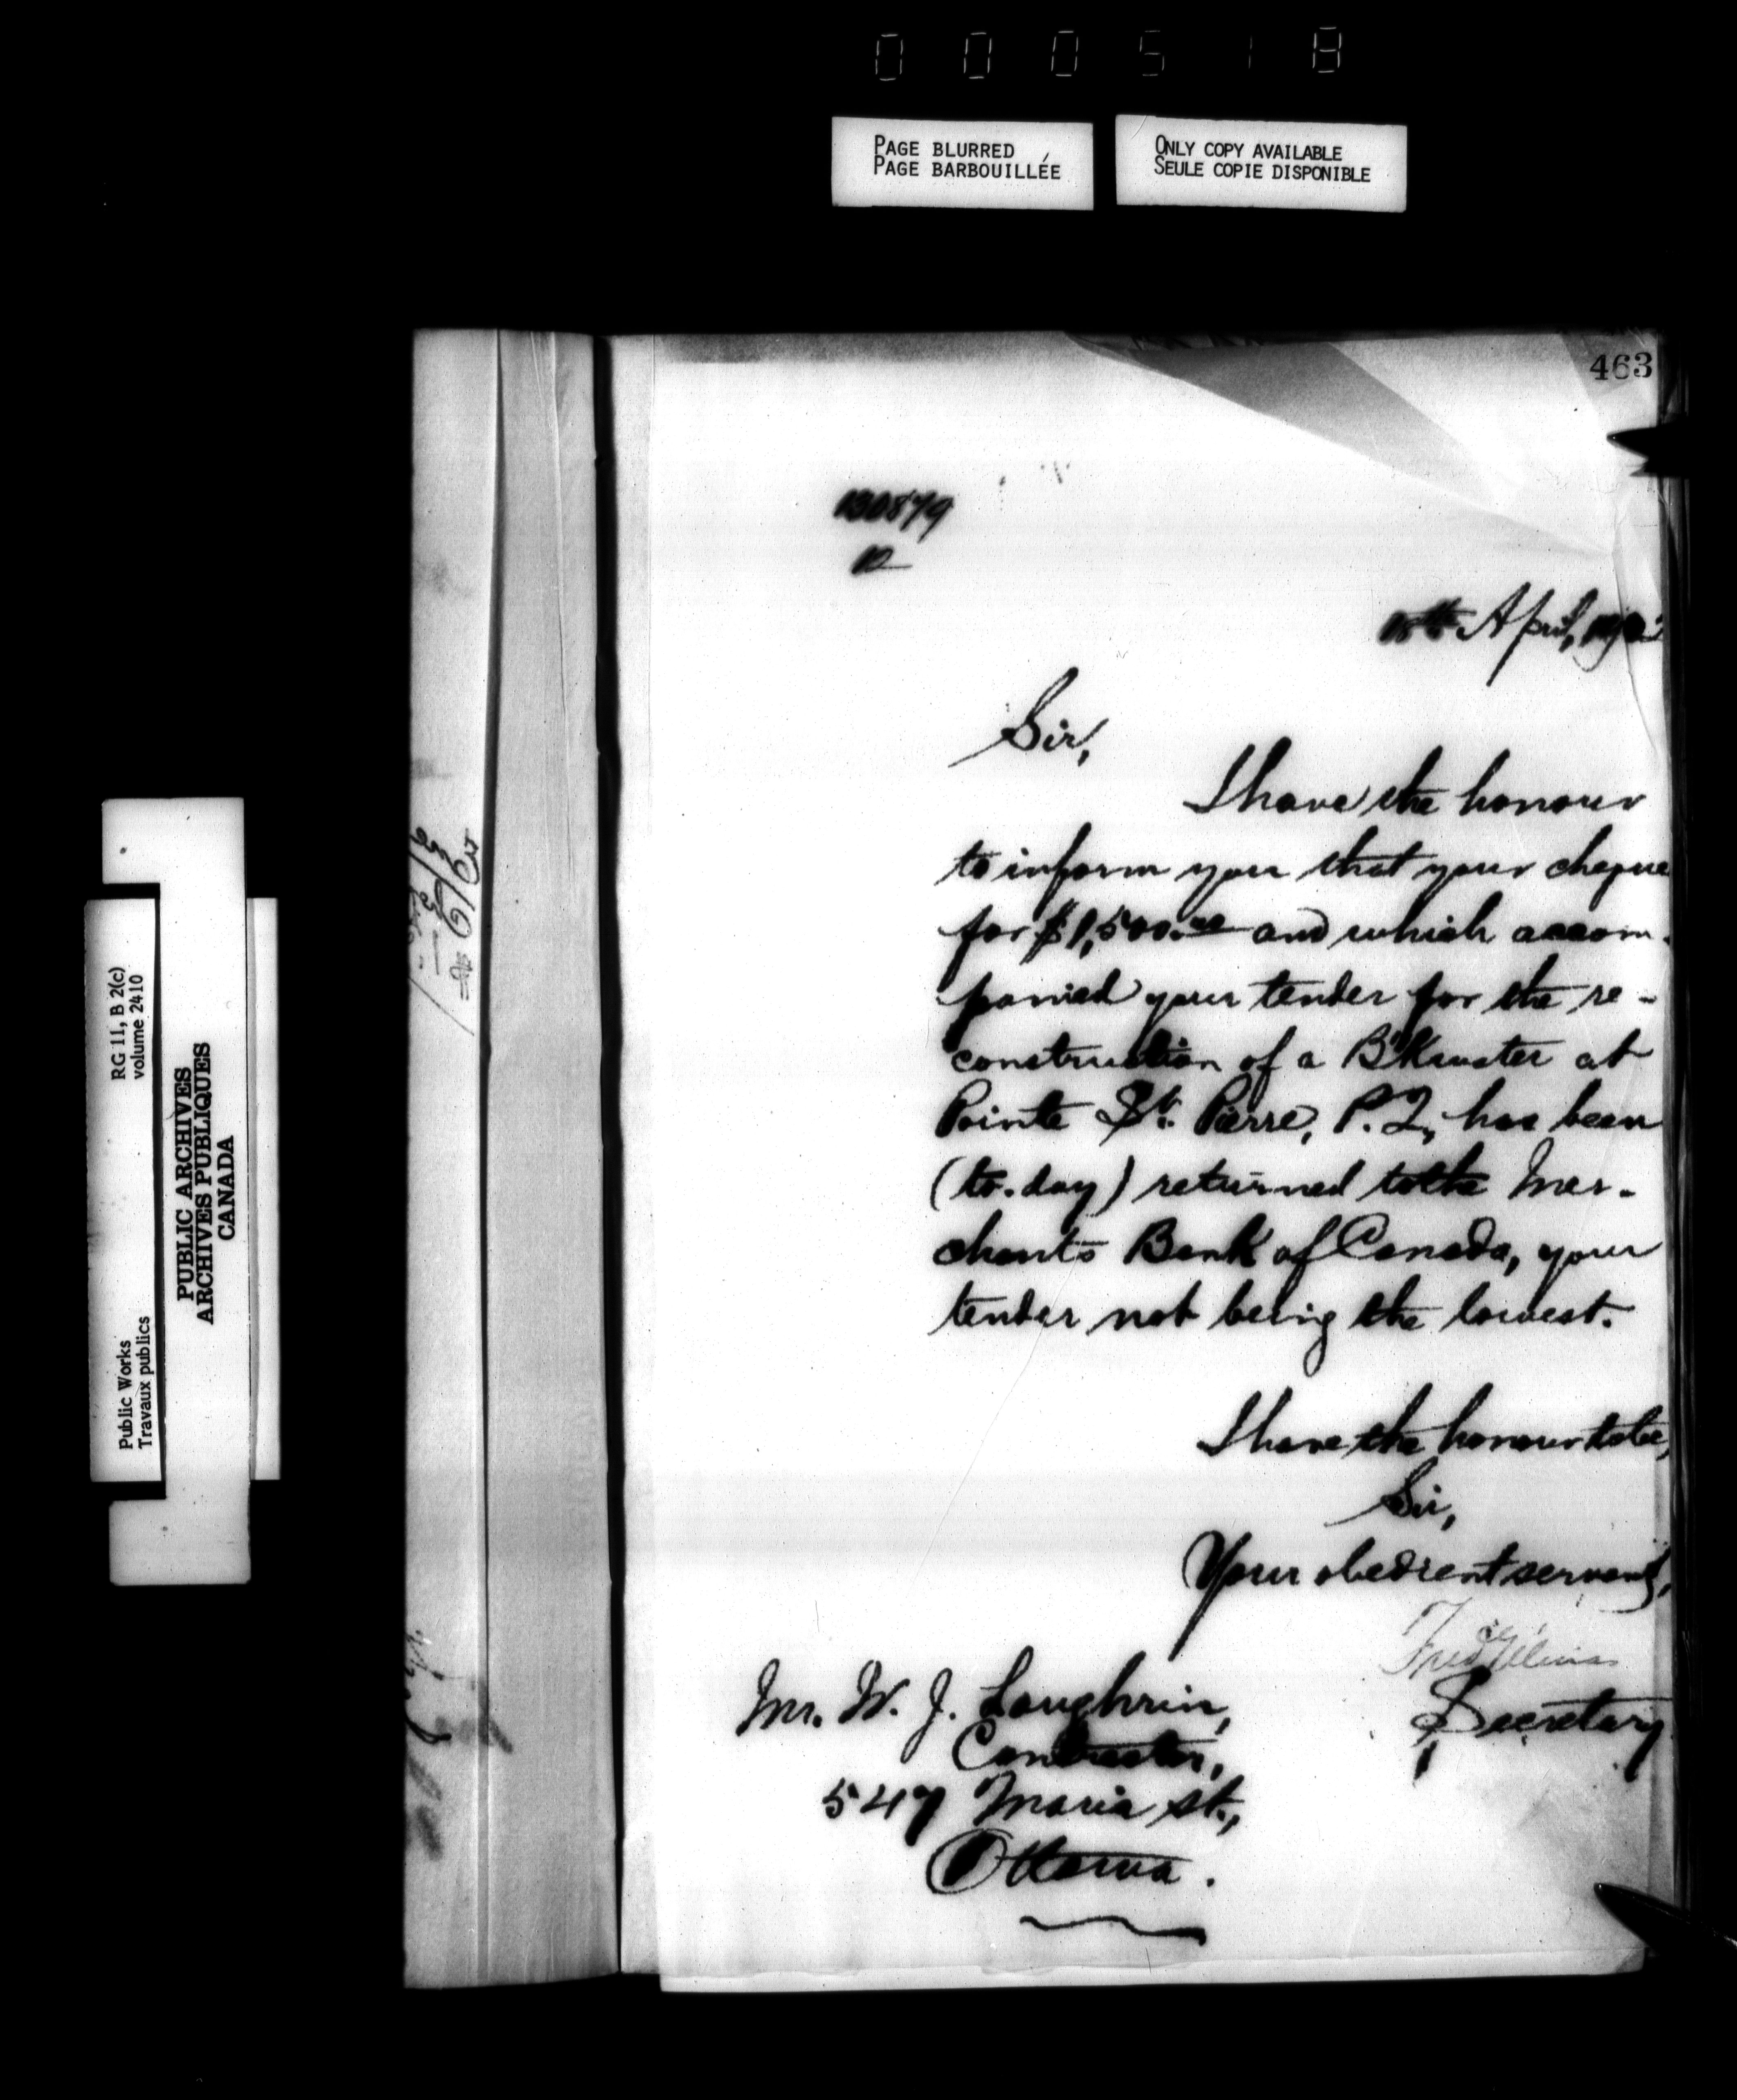 000518
PAGE BLURRED
PAGE BARBOUILLÉE
ONLY COPY AVAILABLE
SEULE COPIE DISPONIBLE
463
130879
12
April,
Sir,
I have the honour
to inform you that your cheque
for $1,500.00 and which accom-
panied your tender for the re-
construction of a B'Kwater at
Pointe St. Pierre, P.Q., has been
(to-day) returned to the Mer-
chants Bank of Canada, your
tender not being the lowest.
I have the honour to be,
Sir,
Your obedient servant,
Fred Gélinas
Secretary
Mr. W. J. Loughrin,
Contractor,
547 Maria st.,
Ottawa.
RG 11, B 2(c)
volume 2410
Public Works
Travaux publics
PUBLIC ARCHIVES
ARCHIVES PUBLIQUES
CANADA